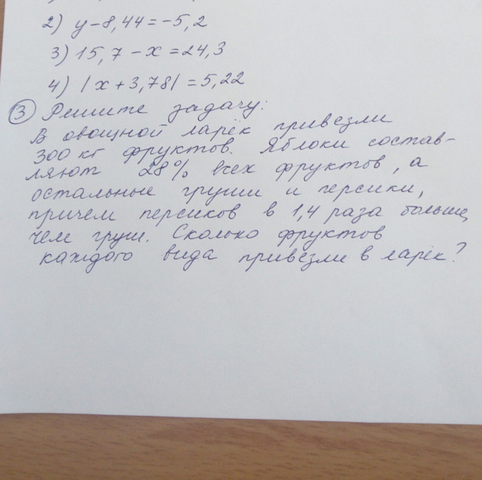 2) y - 8,44 = -5,2
3) 15,7 - x = 24,3
4) |x + 3,78| = 5,22
③ Решите задачу:
В овощной ларёк привезли
300 кг фруктов. Яблоки состав-
ляют 28% всех фруктов, а
остальные груши и персики,
причем персиков в 1,4 раза больше,
чем груш. Сколько фруктов
каждого вида привезли в ларёк?